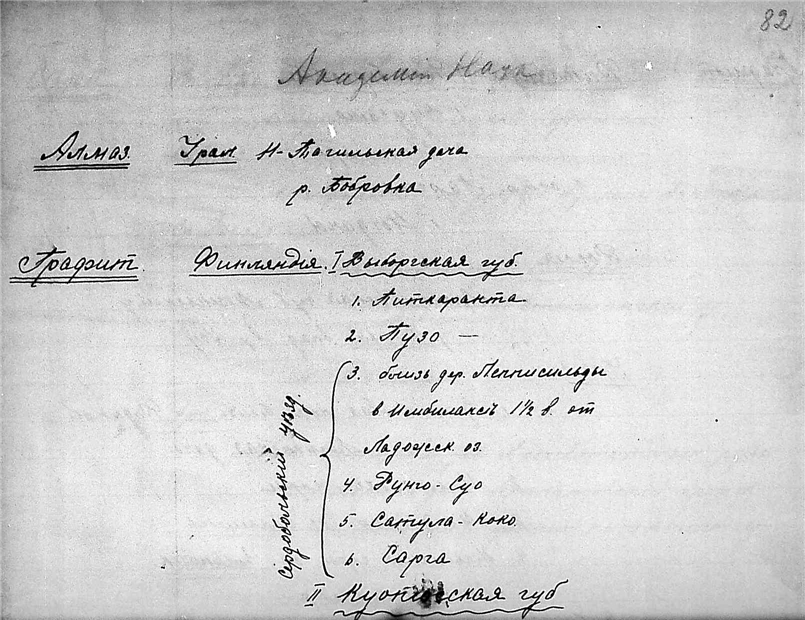 82
Академiя Наук
Алмаз. Урал. Н-Тагильская дача
р. Бобровка
Графит. Финляндiя. I Выборгская губ.
1. Питкаранта
2. Пузо —
3. близь дер. Лепписильды
в Имбилаксѣ 1½ в. от
Ладожск. оз.
4. Рунго-Суо
5. Сатула-Коко
6. Сарга
Сердобольскiй уѣзд.
II Куопiоская губ